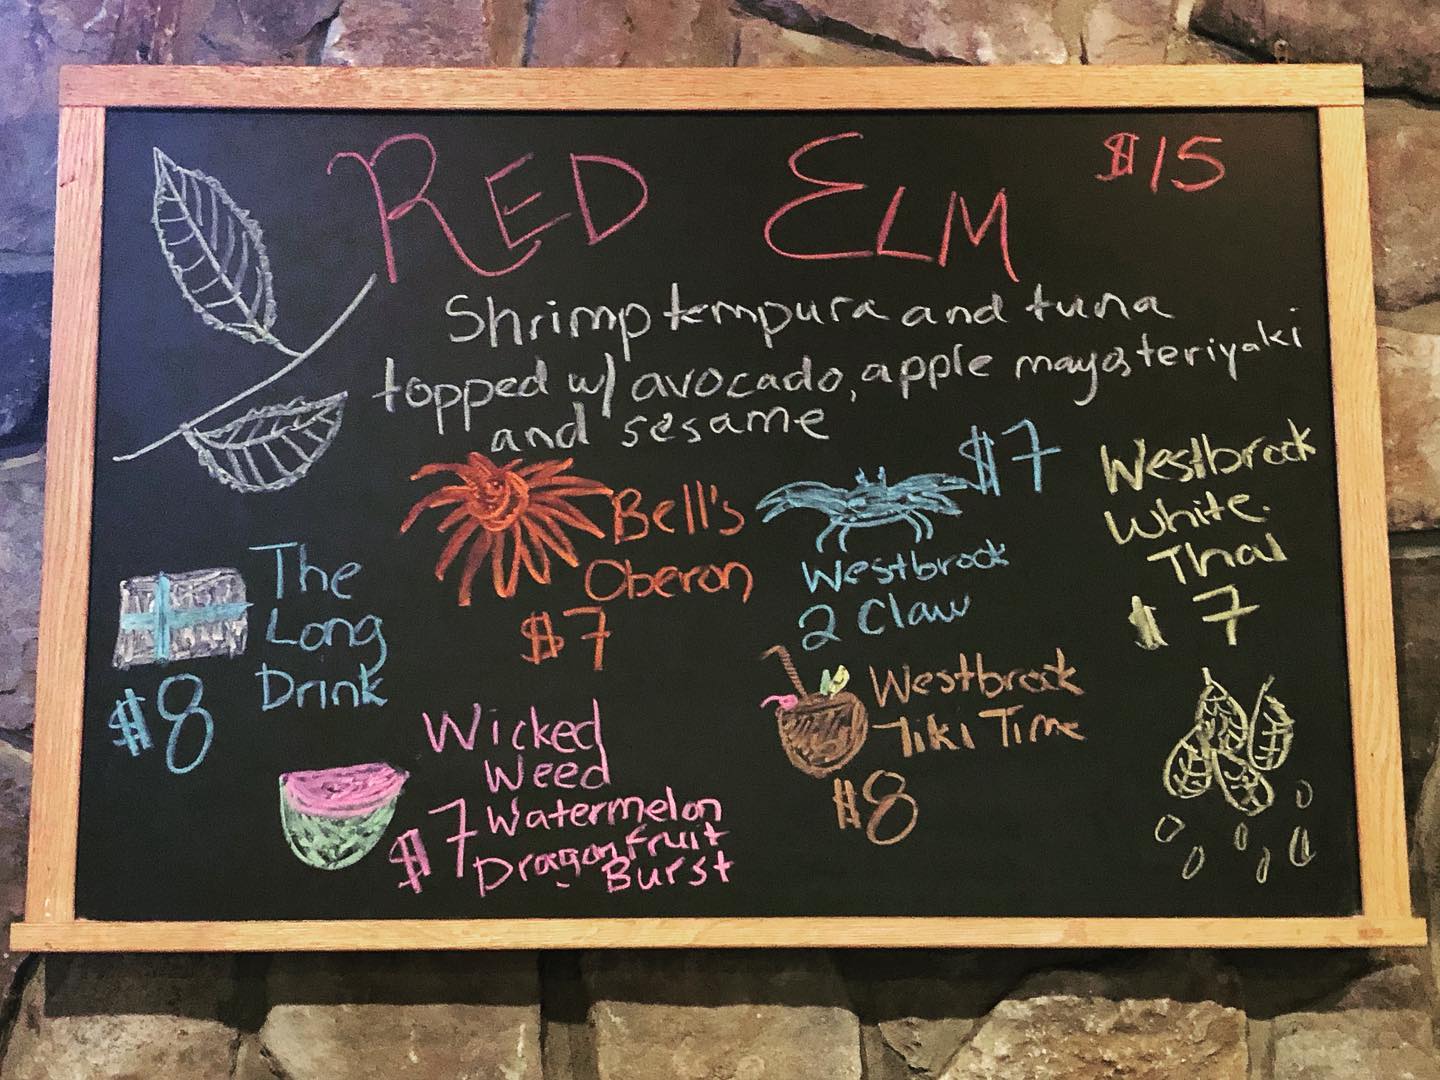 RED ELM $15
Shrimp tempura and tuna
topped w/ avocado, apple mayo, teriyaki
and sesame
The
Long
Drink
$8
Bell's
Oberon
$7
$7
Westbrook
2 Claw
Westbrook
White
Thai
$7
Wicked
Weed
Watermelon
Dragonfruit
Burst
$7
Westbrook
Tiki Time
$8